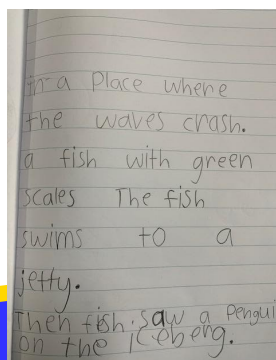 in a Place where
the waves crash.
a fish with green
scales The fish
swims to a
jetty.
Then fish saw a Pengui
on the iceberg.